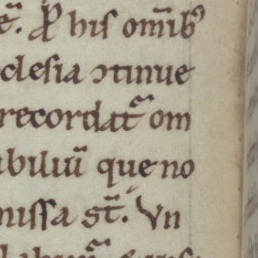 ē. P his om̄ib⁹
clesia ɔtinue
recordat᷒ om
biliū que no
missa st̄. Vn